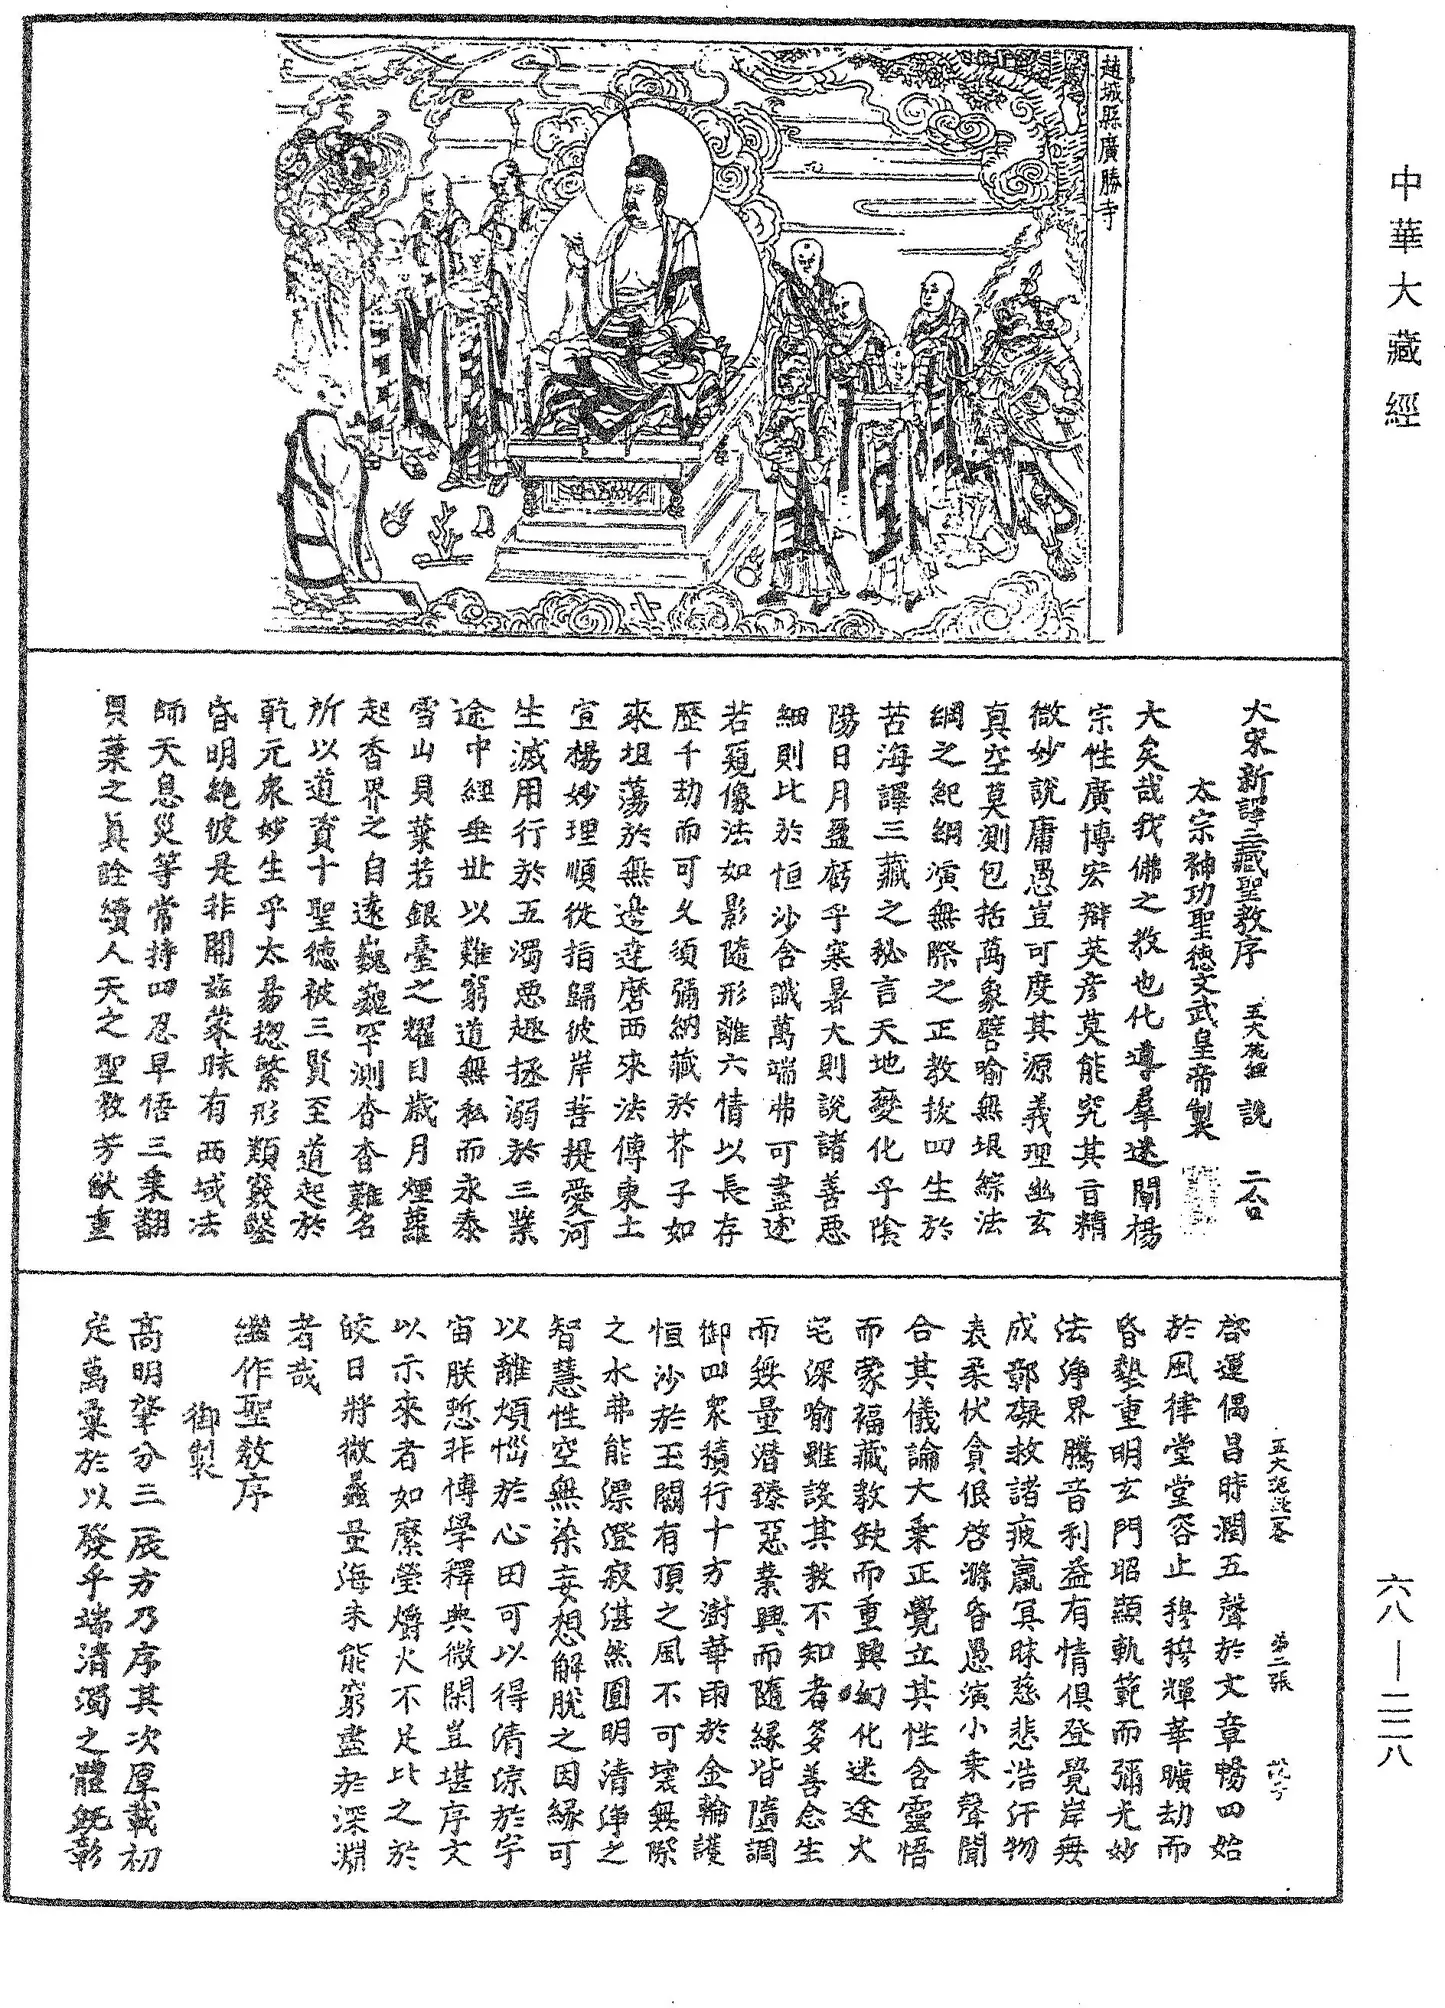 中華大藏經
六八—二二八
趙城縣廣勝寺
大宋新譯三藏聖教序 說 二合
太宗神功聖德文武皇帝製
大矣哉我佛之教也化導羣迷闡揚
宗性廣博宏辯英彥莫能究其旨精
微妙說庸愚豈可度其源義理幽玄
真空莫測包括萬象譬喻無垠綜法
綱之紀綱演無際之正教拔四生於
苦海譯三藏之秘言天地變化乎陰
陽日月盈虧乎寒暑大則說諸善惡
細則比於恒沙含識萬端弗可盡述
若窺像法如影隨形離六情以長存
歷千劫而可久須彌納藏於芥子如
來坦蕩於無邊達磨西來法傳東土
宣楊妙理順從指歸彼岸菩提愛河
生滅用行於五濁惡趣拯溺於三業
途中經垂世以難窮道無私而永泰
雪山貝葉若銀臺之耀日歲月煙蘿
起香界之自遠巍巍罕測杳杳難名
所以道資十聖德被三賢至道起於
乾元衆妙生乎太易揔繁形類竅鑿
昏明絕彼是非開茲蒙昧有西域法
師天息災等常持四忍早悟三乘翻
貝葉之真詮續人天之聖教芳猷重
啓運偶昌時潤五聲於文章暢四始
於風律堂堂容止穆穆輝華曠劫而
昏墊重明玄門昭顯軌範而彌光妙
法淨界騰音利益有情俱登覺岸無
成鄣礙救諸疲羸冥昧慈悲浩汗物
表柔伏貪佷啓滌昏愚演小乘聲聞
合其儀論大乘正覺立其性含靈悟
而蒙福藏教缺而重興幻化迷途火
宅深喻雖設其教不知者多善念生
而無量潛臻惡業興而隨緣皆墮調
御四衆積行十方澍華雨於金輪護
恒沙於玉闕有頂之風不可壞無際
之水弗能漂澄寂湛然圓明清淨之
智慧性空無染妄想解脫之因緣可
以離煩惱於心田可以得清涼於宇
宙朕慙非博學釋典微閑豈堪序文
以示來者如縻螢爝火不足比之於
皎日將微蠡量海未能窮盡於深淵
者哉
繼作聖教序
御製
高明肇分三辰方乃序其次厚載初
定萬彙於以發乎端清濁之體既彰
第二張